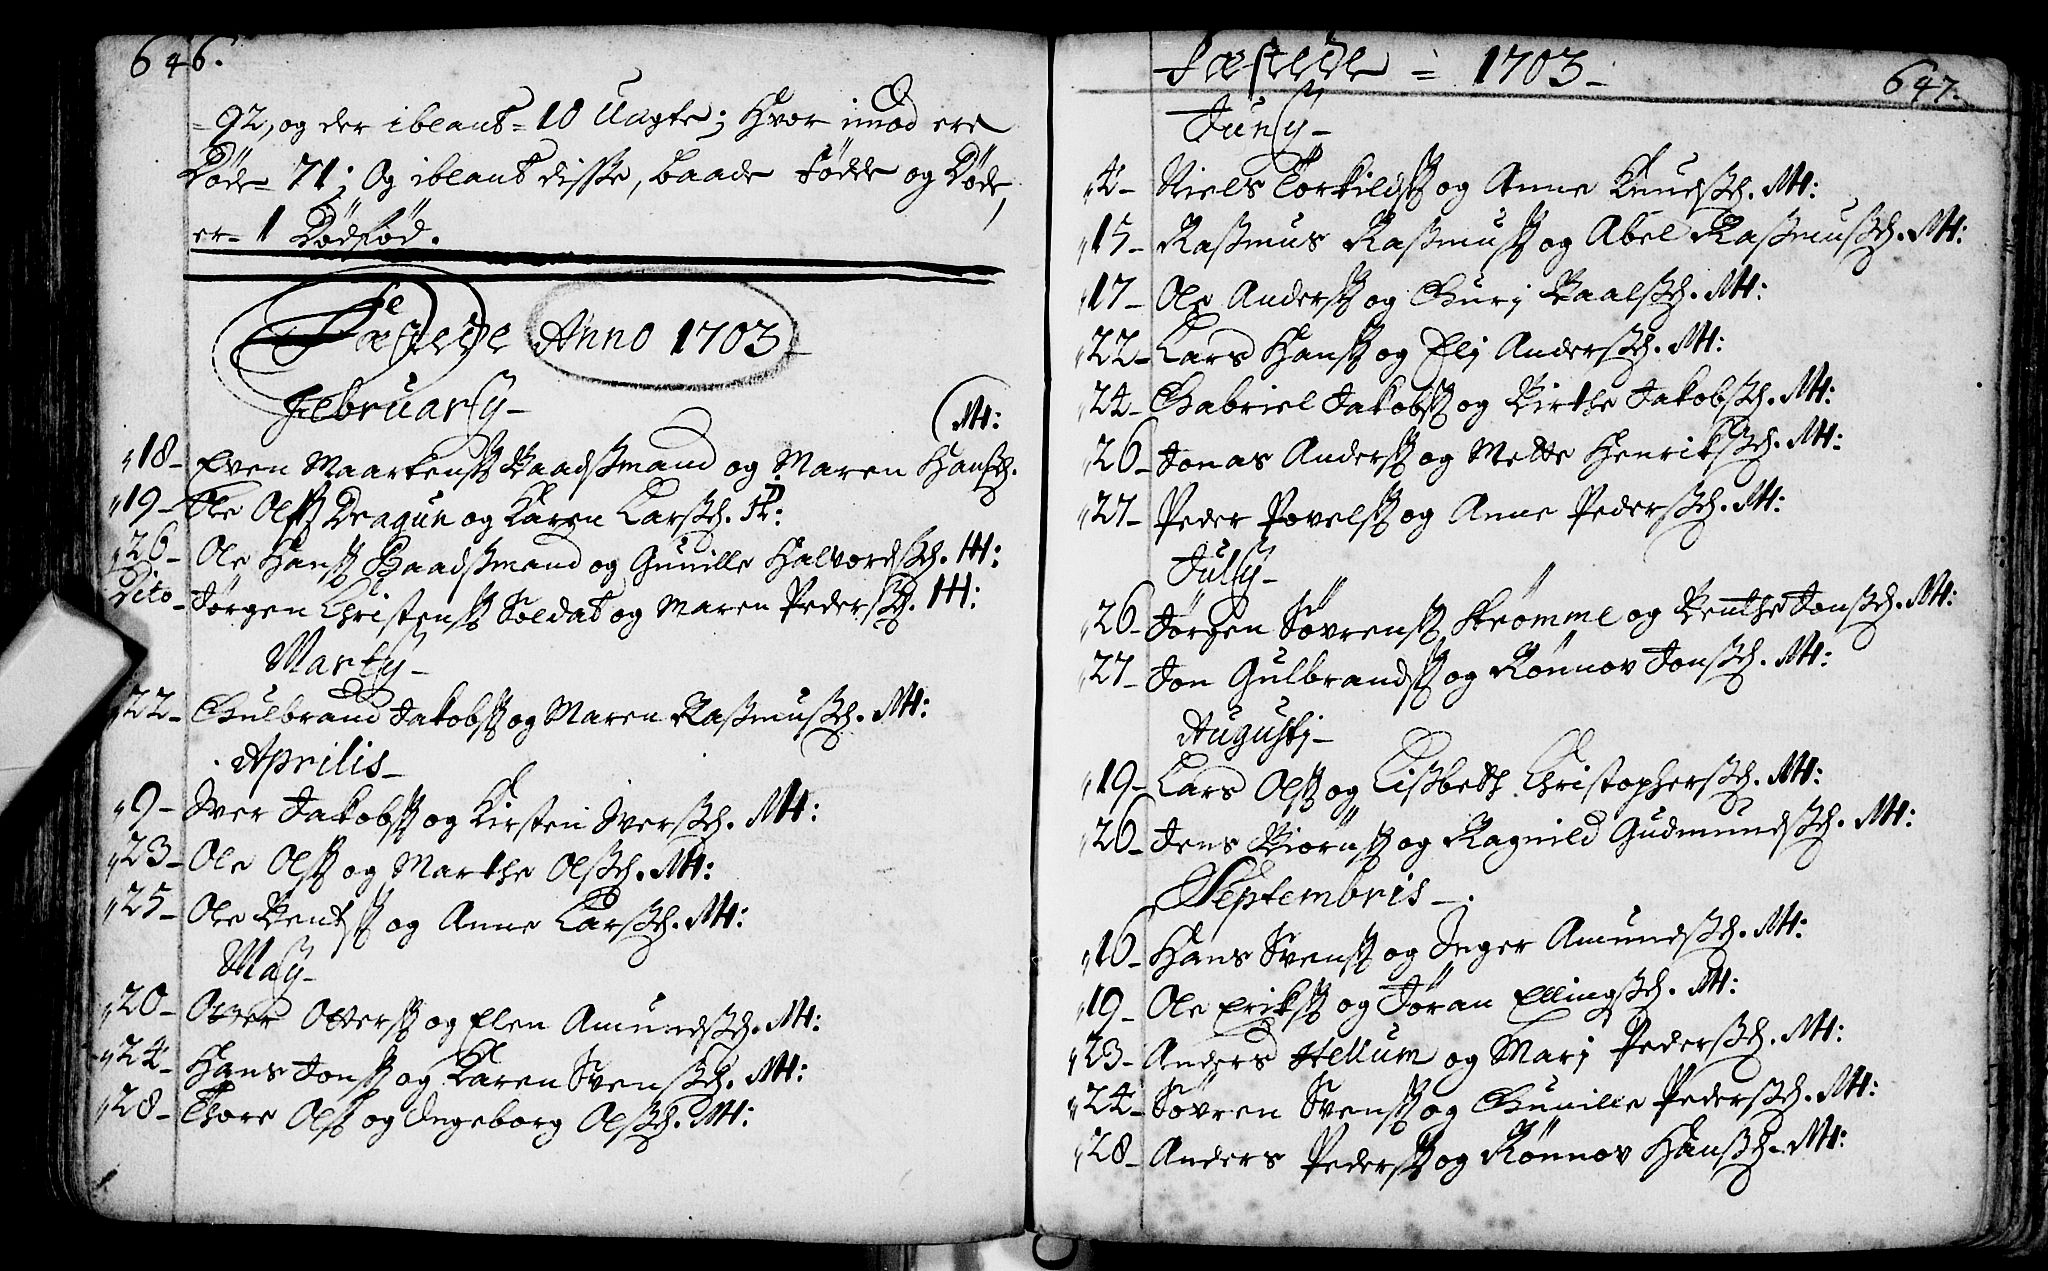 646.
= 92, og der iblant = 10 Uægte; Hvor imod ere
Døde = 71; Og iblant disse, baade Fødde og Døde,
er = 1 Dødfød.
Fæstede Anno 1703
Februarij
18 - Even Maartenss. Baadsmand og Maren Hansd. M:
19 - Ole Olss. Dragun og Karen Larsd.
26 - Ole Hanss. Baadsmand og Gunille Halvordsd. M:
Dito - Jørgen Christenss. Soldat og Maren Pedersd. M:
Martij
22 - Gulbrand Jakobss. og Maren Rasmusd. M:
Aprilis
9 - Iver Jakobss. og Kirsten Iversd. M:
23 - Ole Olss. og Marthe Olsd. M:
25 - Ole Bentss. og Anne Larsd. M:
Maij
20 - Otter Otterss. og Elen Amundsd. M:
24 - Hans Jonss. og Karen Svensd. M:
28 - Thore Olss. og Ingeborg Olsd. M:
Fæstede = 1703 -
647.
Junij
4 - Niels Torkildss. og Anne Knudsd. M:
15 - Rasmus Rasmuss. og Abel Rasmusd. M:
17 - Ole Anderss. og Gurj Paalsd. M:
22 - Lars Hanss. og Elj Andersd. M:
24 - Gabriel Jakobss. og Birthe Jakobsd. M:
26 - Jonas Anderss. og Mette Henriksd. M:
27 - Peder Povelss. og Anne Pedersd. M:
Julij
26 - Jørgen Søvrenss. Strømme og Benthe Jonsd. M:
27 - Jon Gulbrandss. og Rønnov Jonsd. M:
Augustj
19 - Lars Olss. og Lisbeth Christophersd. M:
26 - Jens Biørnss. og Ragnild Gudmundsd. M:
Septembris
16 - Hans Svenss. og Inger Amundsd. M:
19 - Ole Erikss. og Jøran Ellingsd. M:
23 - Anders Hellum og Marj Pedersd. M:
24 - Søvren Svenss. og Gunille Pedersd. M:
28 - Anders Pederss. og Rønnov Hansd. M: